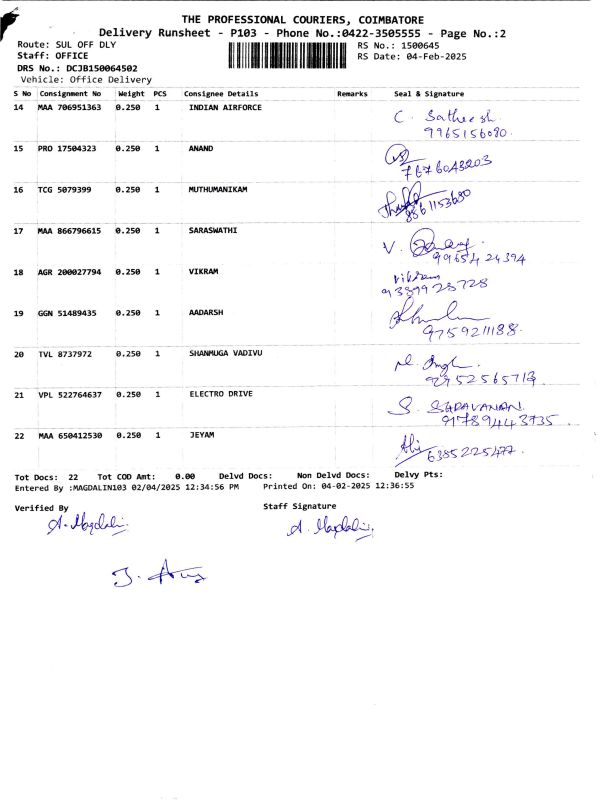 THE PROFESSIONAL COURIERS, COIMBATORE
Delivery Runsheet - P103 - Phone No.:0422-3505555 - Page No.:2
Route: SUL OFF DLY RS No.: 1500645
Staff: OFFICE RS Date: 04-Feb-2025
DRS No.: DCJB150064502
Vehicle: Office Delivery
S No Consignment No Weight PCS Consignee Details Remarks Seal & Signature
14 MAA 706951363 0.250 1 INDIAN AIRFORCE C. Satheesh
9965156080.
15 PRO 17504323 0.250 1 ANAND
7676043203
16 TCG 5079399 0.250 1 MUTHUMANIKAM
8861153680
17 MAA 866796615 0.250 1 SARASWATHI V.
9965424394
18 AGR 200027794 0.250 1 VIKRAM vikram
9389928728
19 GGN 51489435 0.250 1 AADARSH
9759211188.
20 TVL 8737972 0.250 1 SHANMUGA VADIVU
21 VPL 522764637 0.250 1 ELECTRO DRIVE S. SARAVANAN.
9789443735.
22 MAA 650412530 0.250 1 JEYAM Abi
6385225477.
Tot Docs: 22 Tot COD Amt: 0.00 Delvd Docs: Non Delvd Docs: Delvy Pts:
Entered By :MAGDALIN103 02/04/2025 12:34:56 PM Printed On: 04-02-2025 12:36:55
Verified By Staff Signature
A. Magdalin. A. Magdalin.